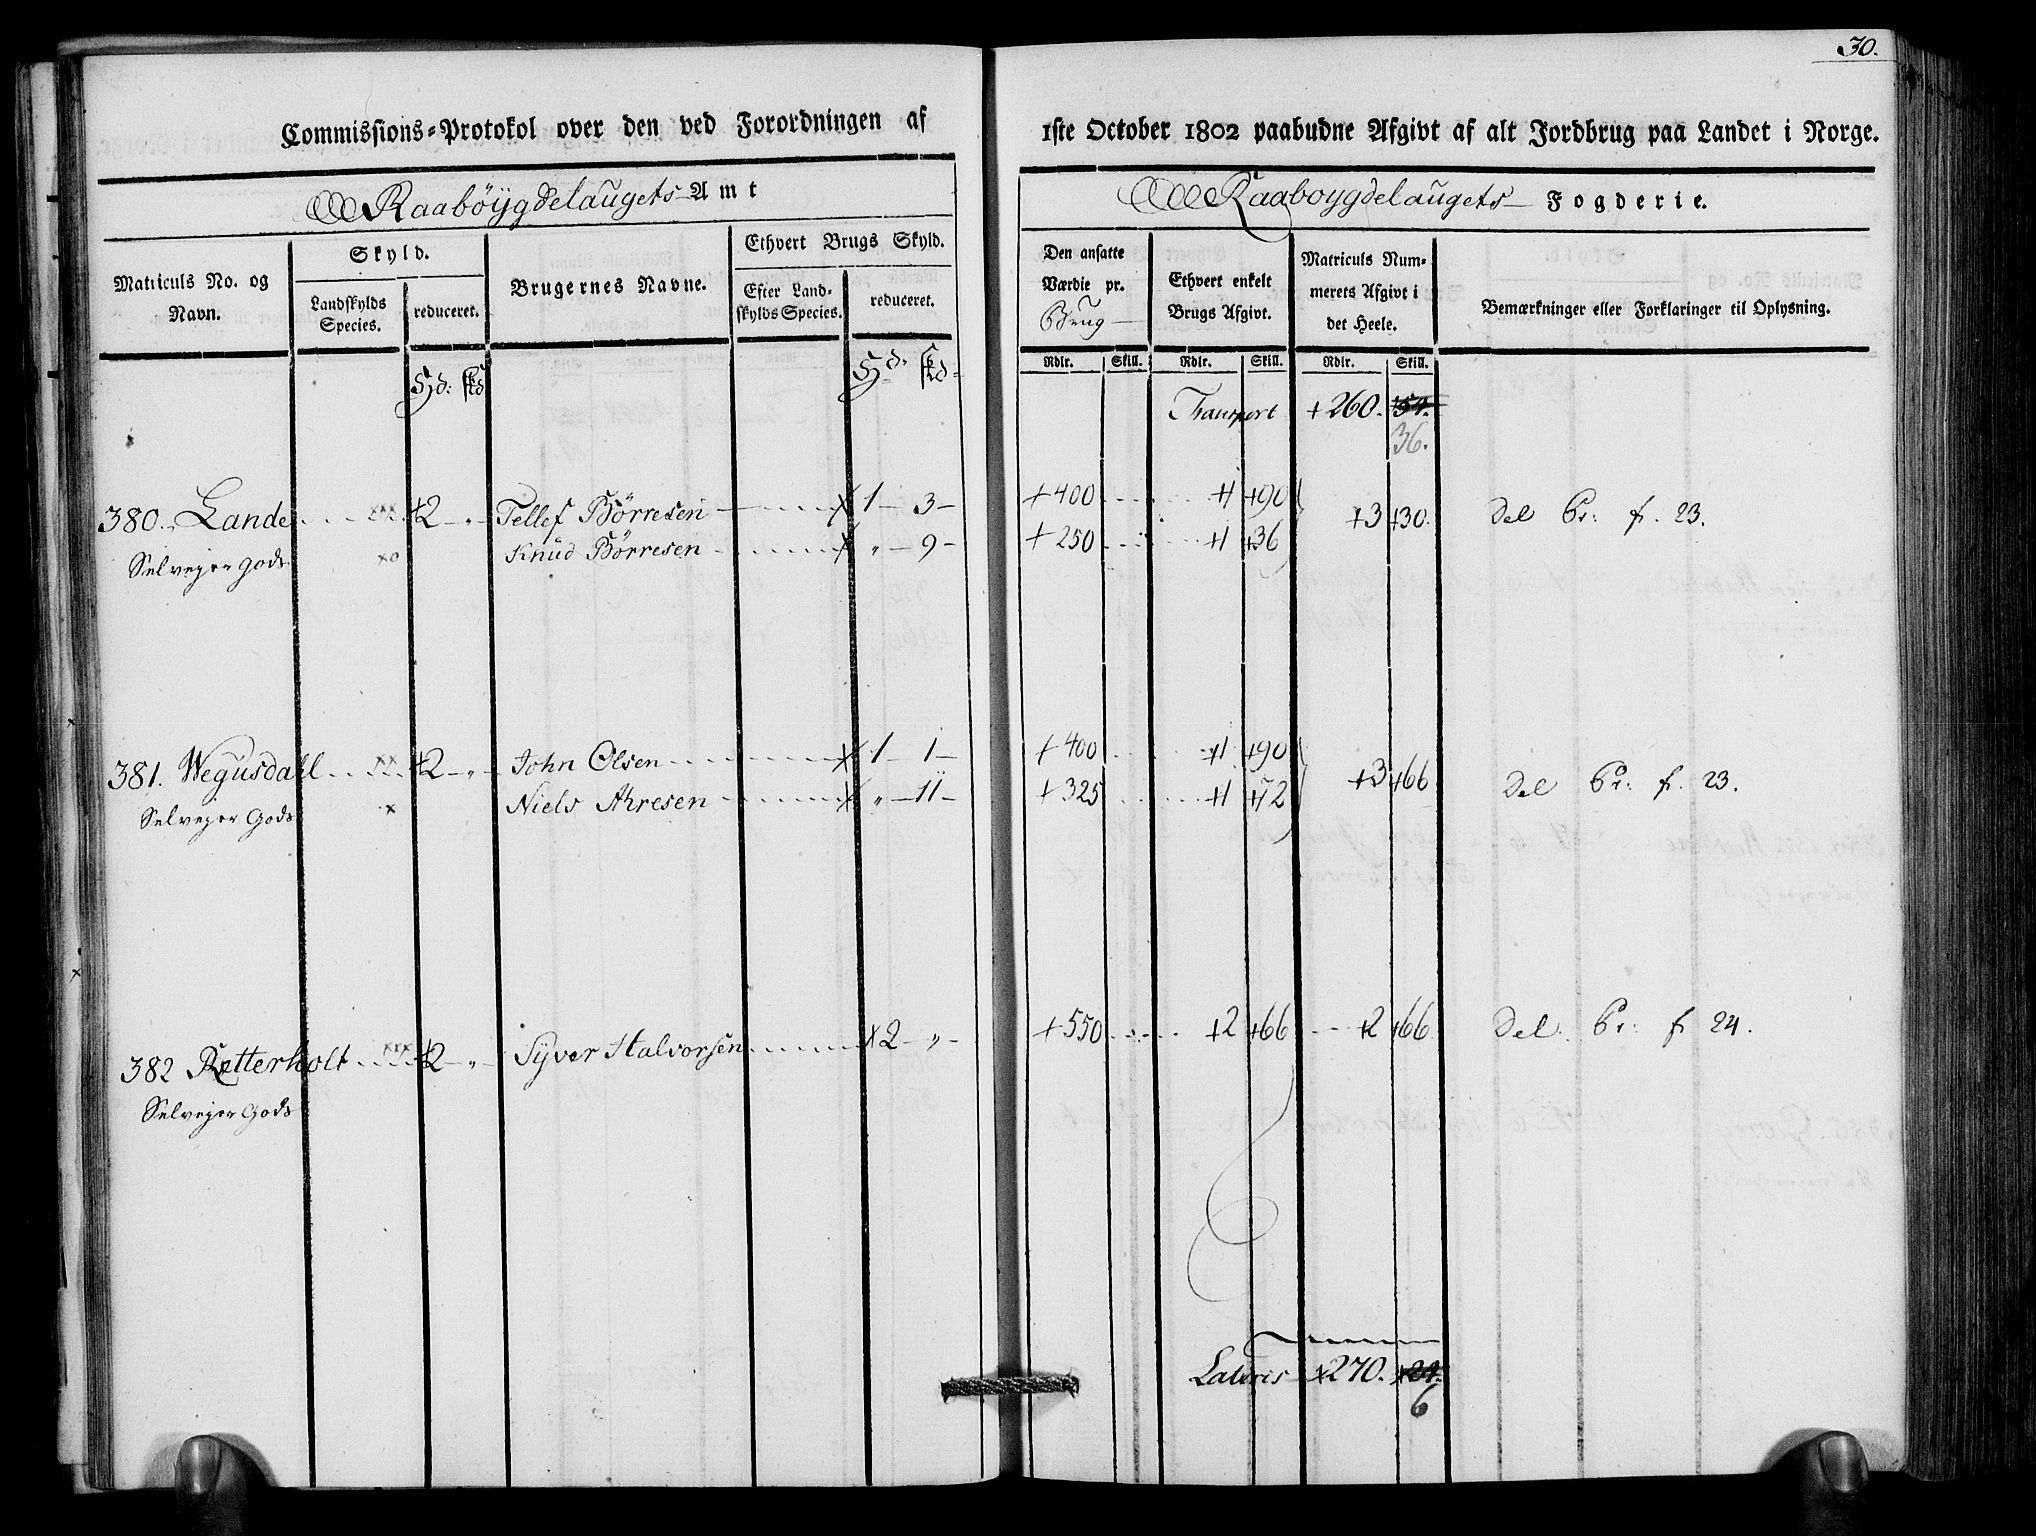 30.
Commissions=Protokol over den ved Forordningen af
1ste October 1802 paabudne Afgivt af alt Jordbrug paa Landet i Norge.
Raabøygdelaugets Amt
Raaboygdelaugets Fogderie.
Matriculs No. og Navn.
Skyld.
Landskylds Species.
reduceret.
Brugernes Navne.
Ethvert Brugs Skyld.
Efter Landskylds Species.
reduceret.
Den ansatte Værdie pr. Brug
Ethvert enkelt Brugs Afgivt.
Matriculs Nummerets Afgivt i det Heele.
Bemærkninger eller Forklaringer til Oplysning.
Rdlr. Skill. Rdlr. Skill. Rdlr. Skill.
Hd: skd Hd: skd
Transport +260. +54.
36.
380. Lande xxx +2 — „ Tellef Börresen x 1 — 3 — +400 +1 +90 +3 +30. Del Pr: f. 23.
Selvejer gods xo Knud Börresen x „ — 9 — +250 +1 +36
381. Wegusdahl xx +2 — „ John Olsen x 1 — 1 — +400 +1 +90 +3 +66 Del Pr: f. 23.
Selvejer Gods x Niels Ahresen x „ — 11 — +325 +1 +72
382 Retterholt xxx +2 — „ Syver Halvorsen x 2 — „ — +550 +2 +66 +2 +66 Del. Pr: f 24.
Selvejer Gods
Lateris x270. +24.
6